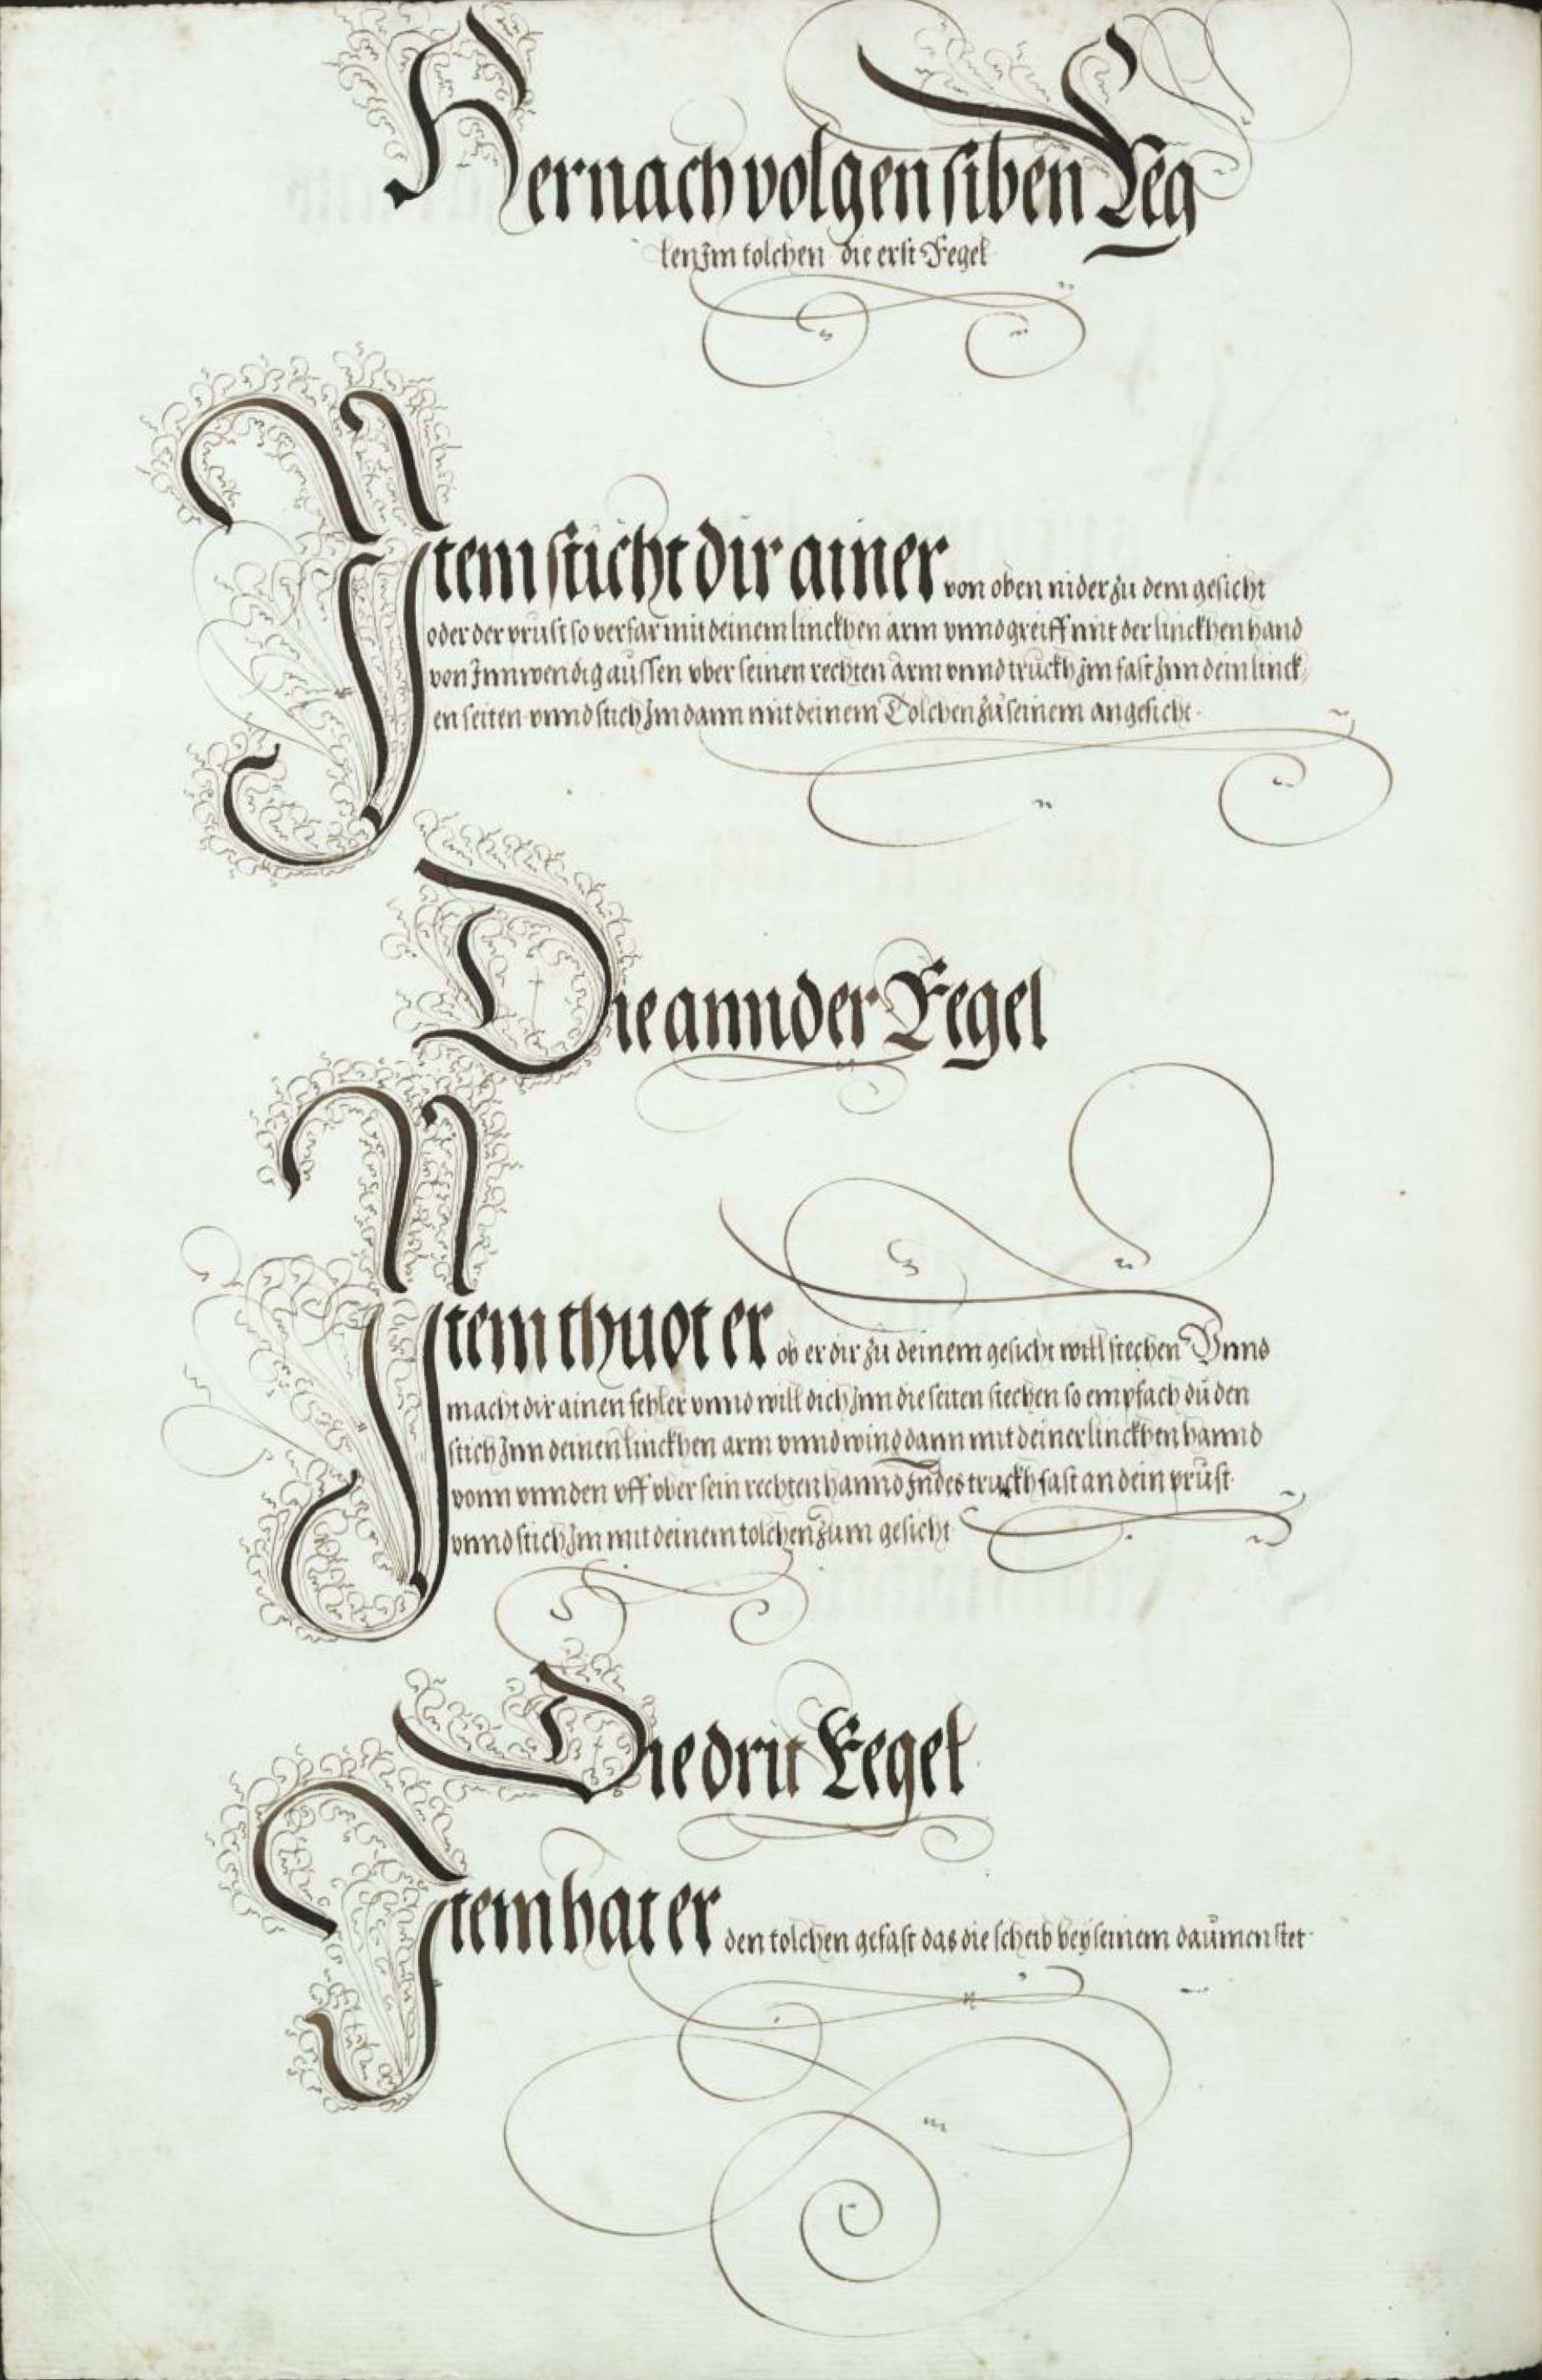 Hernach volgen siben Reg
len Im tolchen die erst Regel
Item sticht dir ainer von oben nider zu dem gesicht
oder der prust so verfar mit deinem linckhen arm vnnd greiff mit der linckhen hand
von Innwendig aussen vber seinen rechten arm vnnd truckh Im fast Inn dein linck„
en seiten vnnd stich Im dann mit deinem Tolchen zů seinem angesicht.
Die annder Regel
Item thuot er ob er dir zů deinem gesicht will stechen Vnnd
macht dir ainen fehler vnnd will dich Inn die seiten stechen so empfach dů den
stich Inn deinen linckhen arm vnnd wind dann mit deiner linckhen hannd
vonn vnnden vff vber sein rechten hannd Indes truckh fast an dein průst
vnnd stich Im mit deinem tolchen zům gesicht
Die drit Regel
Item hat er den tolchen gefast das die scheib bey seinem daůmen stet